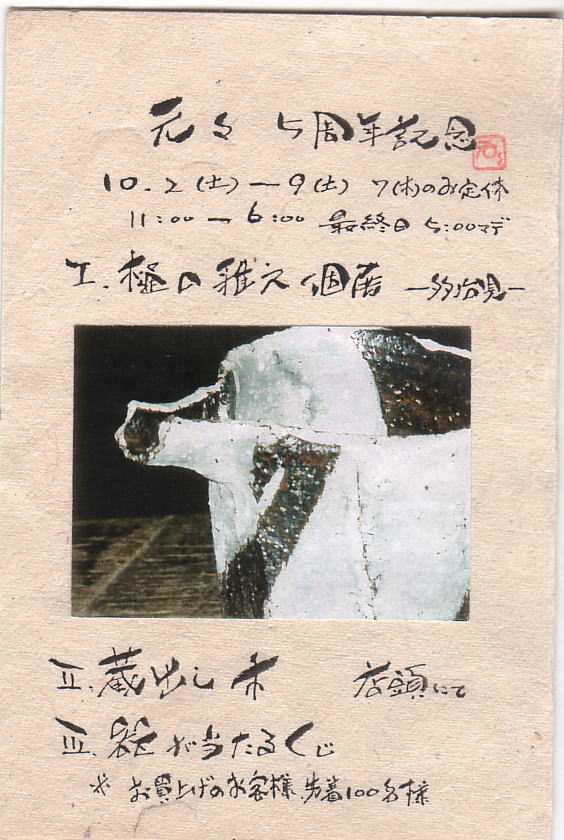 元々 5周年記念
10.2(土)—9(土) 7(木)のみ定休
11:00—6:00 最終日 5:00マデ
I. 樋口雅之個展 —多治見—
II. 蔵出し市 店頭にて
III. 器が当たるくじ
※ お買上げのお客様 先着100名様